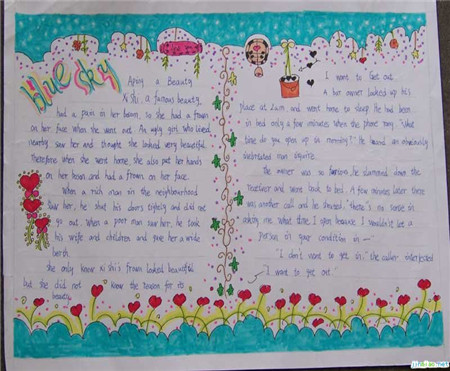 blue sky
Aping a Beauty
Xi shi, a famous beauty,
had a pain in her bosom, so she had a frown
on her face when she went out. An ugly girl who lived
nearby saw her and thought she looked very beautiful.
Therefore when she went home, she also put her hands
on her bosom and had a frown on her face.
When a rich man in the neighbourhood
saw her, he shut his doors tightly and did not
go out. When a poor man saw her, he took
his wife and children and gave her a wide
berth.
She only knew Xi shi's frown looked beautiful
but she did not know the reason for its
beauty.
I want to get out
A bar owner locked up his
place at 2 a.m. and went home to sleep. He had been
in bed only a few minutes when the phone rang. "What
time do you open up in morning?" He heard an obviously
inebriated man inquire.
The owner was so furious, he slammed down the
receiver and went back to bed. A few minutes later there
was another call and he
"there's no sense in
asking me what time I open because I wouldn't let a
person in your condition in —
"I don't want to get in." the caller interjected
"I want to get out."